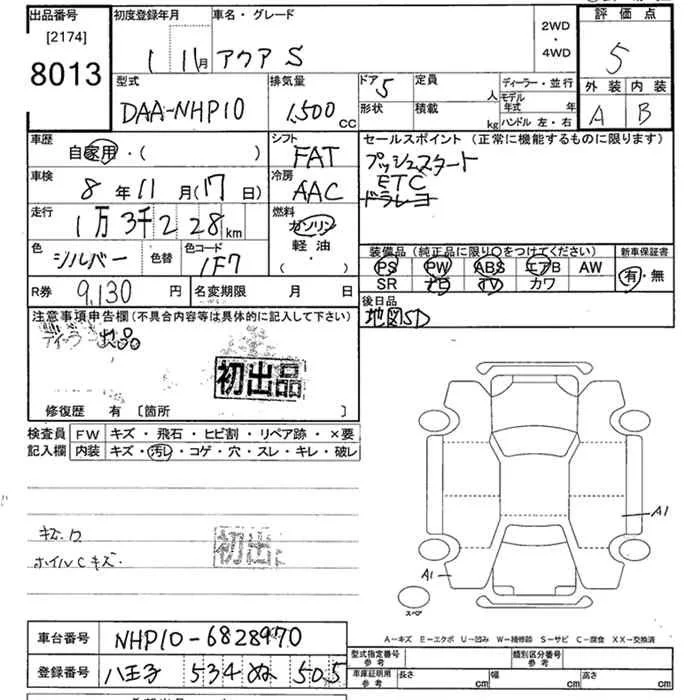 出品番号
[2174]
8013
初度登録年月
1 11月
車名・グレード
アクア S
2WD
・
4WD
評価点
5
外装 内装
A B
型式
DAA-NHP10
排気量
1,500 CC
ドア 5
定員
人
形状
積載
kg
ディーラー・並行
モデル年式 年
ハンドル 左・右
車歴
自家用・( )
シフト
FAT
セールスポイント (正常に機能するものに限ります)
プッシュスタート
ETC
ドラレコ
車検
8年11月(17日)
冷房
AAC
走行
1万3千228km
燃料
ガソリン
軽油
( ・ )
色
シルバー
色替
色コード
1F7
装備品 (純正品に限り○をつけてください)
PS PW ABS エアB AW
SR ナビ TV カワ
新車保証書
有・無
R券 9,130円
名変期限 月 日
後日品
地図SD
注意事項申告欄(不具合内容等は具体的に記入して下さい)
ディーラー出品
初出品
修復歴 有 [箇所 ]
検査員記入欄
FW キズ・飛石・ヒビ割・リペア跡・×要
内装 キズ・汚レ・コゲ・穴・スレ・キレ・破レ
ホイルCキズ.
初出
A1
A1
スペア
A-キズ E-エクボ U-凹み W-補修跡 S-サビ C-腐食 XX-交換済
車台番号 NHP10-6828970
登録番号 八王子 534 ぬ 505
型式指定番号 参考
類別区分番号 参考
車庫証明用 参考
長さ cm 幅 cm 高さ cm